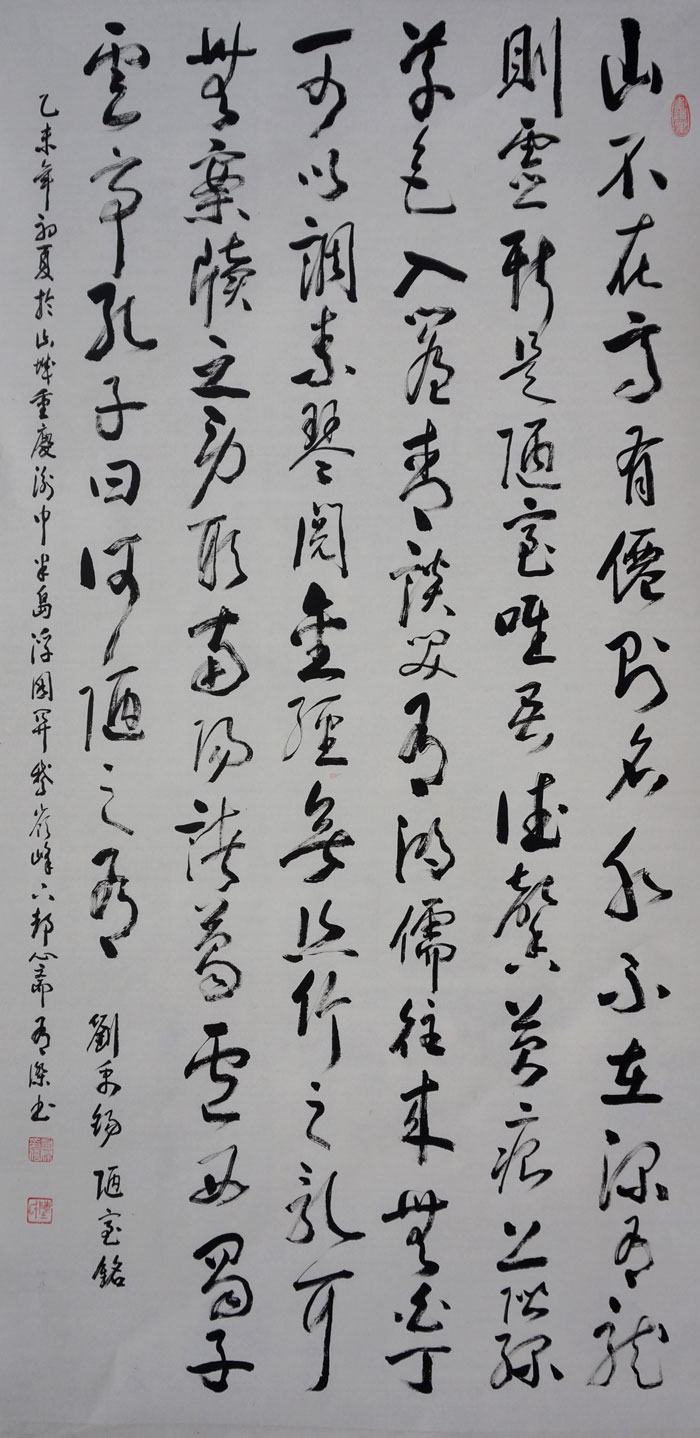 山不在高有僊則名水不在深有龍
則靈斯是陋室唯吾德馨苔痕上階綠
草色入簾青談笑有鴻儒往來無白丁
可以調素琴閱金經無絲竹之亂耳
無案牘之勞形南陽諸葛廬西蜀子
雲亭孔子曰何陋之有
劉禹錫 陋室銘
乙未年初夏於山城重慶渝中半島浮圖關鵝嶺峰心齋有書